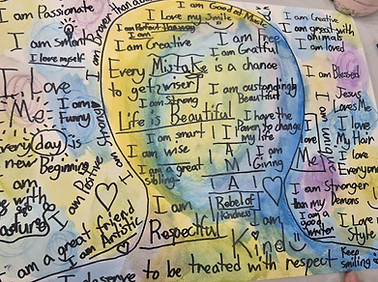 I am Passionate
I am Smart
I love myself
I Love
Me
I am Funny
Every day is
a new Beginning
I am
I am Positive
I am Strong
I am a great friend
I am Artistic
I deserve to be treated with respect
I am Good at Music
I Love my Smile
I am Perfect this way
I am Creative
I am Free
I am Gratful
Every Mistake is a chance
to get wiser!
I am oustandingly
Beautiful
Life is Beautiful
I have the
Power to change
my life
I am smart
I am wise
I am a great
sibling
I AM
I am
Giving
I AM
I am
Respectful
Rebel of
Kindness
I am
Kind
I am Creative
I am great with
animals
I am loved
I am Blessed
Jesus
Loves Me
I love
Me
I love
My Hair
I love
Everyone
I am Stronger
than my
Demons
I am
a good
writer
I Love
Style
Keep
Smiling